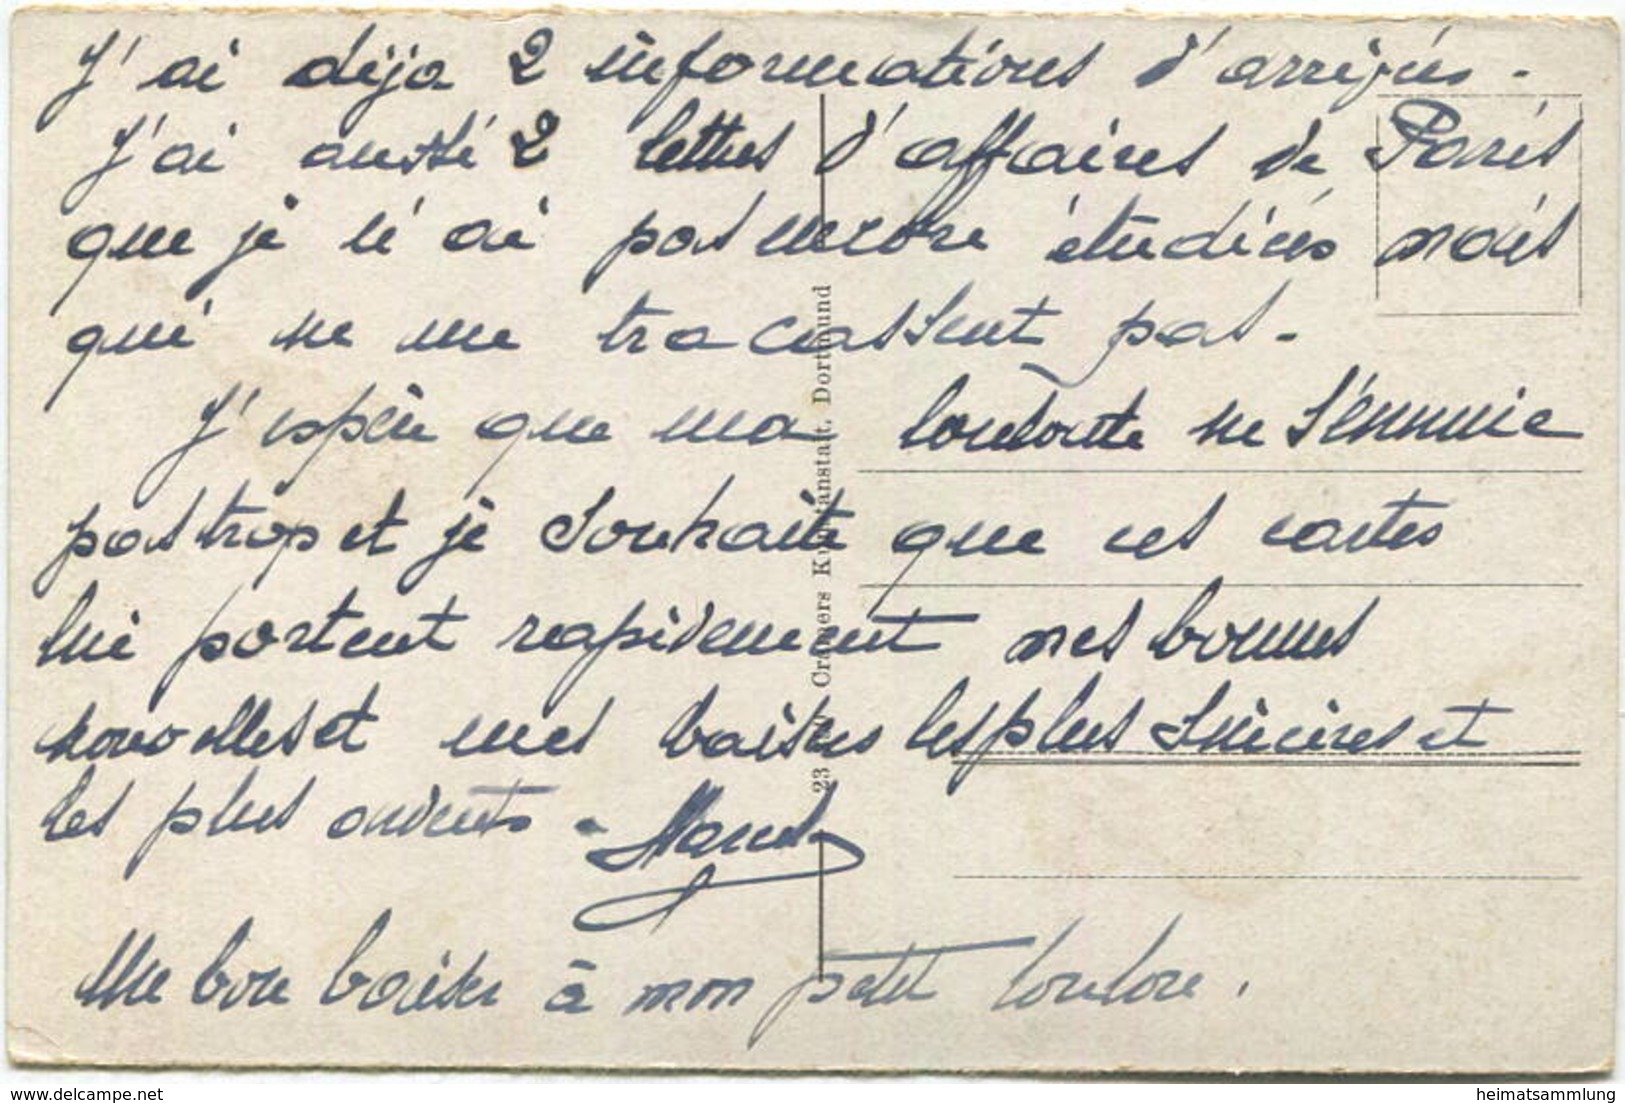 J'ai déja 2 informations d'arrivées.
J'ai aussi 2 lettres d'affaires de Paris
que je n'ai pas encore étudiées mais
qui ne me tracassent pas.
J'espère que ma louloute ne s'ennuie
pas trop et je souhaite que ces cartes
lui portent rapidement mes bonnes
nouvelles et mes baisers les plus sincères et
les plus ardents. Marcel
Un bon baiser à mon petit loulou.
23 Cramers Kunstanstalt. Dortmund
heimatsammlung